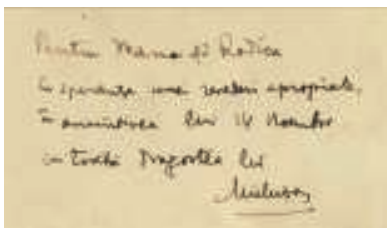 Pentru Mama și Rodica
Cu speranța unei revederi apropiate,
În amintirea lui 14 Noembre
cu toată Dragostea lui